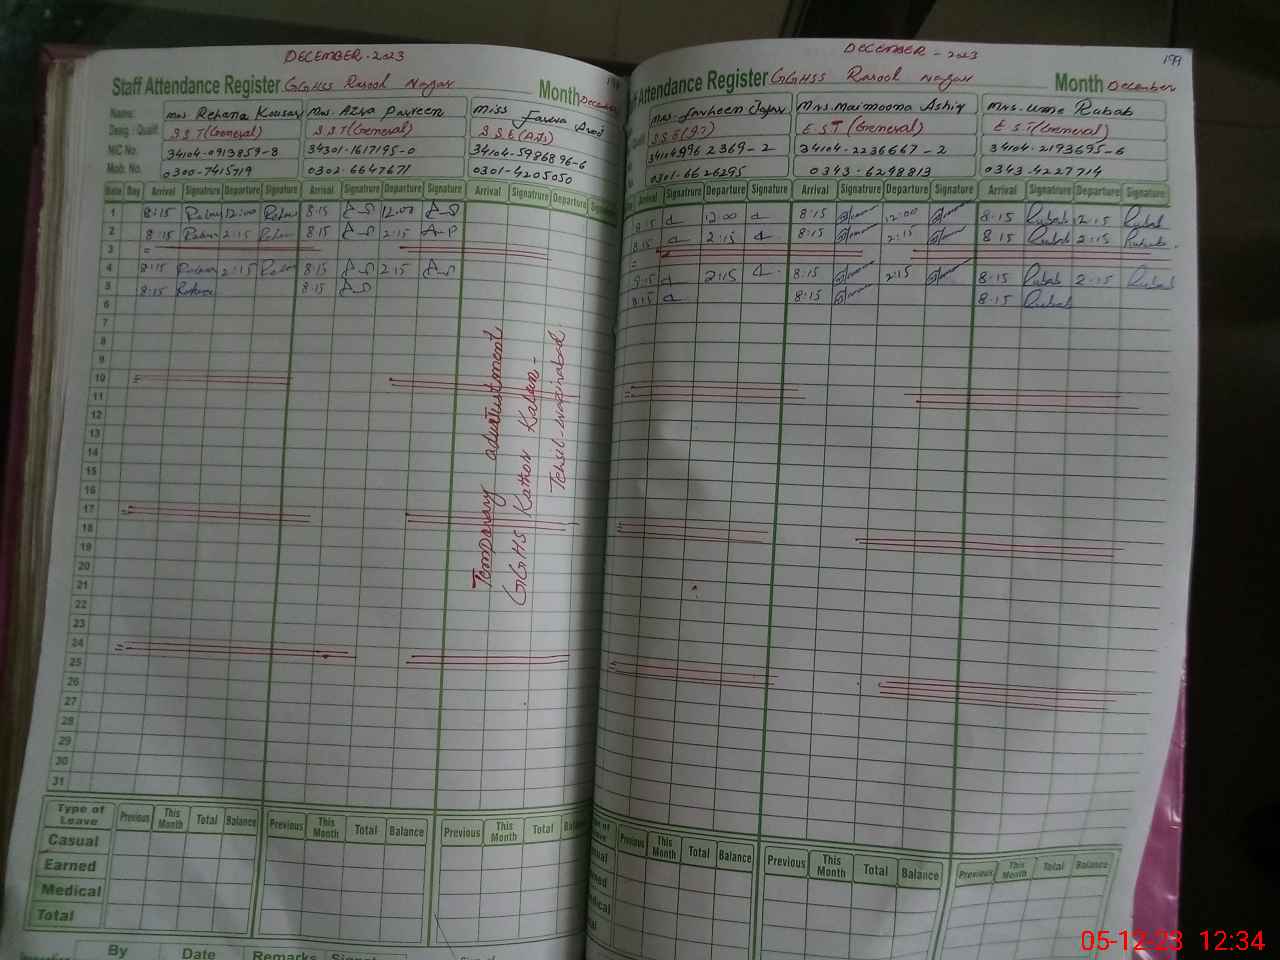 DECEMBER-2023
Staff Attendance Register GGHSS Rasool Nagar Month December
Name: Mrs Rehana Kousar Mrs Azra Parveen Miss
Desig./Qualif. SST(General) SST(General) SSE(
NIC No. 34104-0913859-8 34301-1617195-0 34104-5986896-6
Mob. No. 0300-7415719 0302-6647671 0301-4205050
Date Day Arrival Signatrure Departure Signature Arrival Signatrure Departure Signature Arrival Signatrure Departure
1 8:15 12:00 8:15 12:00
2 8:15 2:15 8:15 2:15
3
4 8:15 2:15 8:15 2:15
5 8:15 8:15
6
7
8
9
10
11
12
13
14
15
16
17
18
19
20
21
22
23
24
25
26
27
28
29
30
31
Temporary
GGHS Kathor Kalan-
Tehsil-Wazirabad.
Type of Leave Previous This Month Total Balance Previous This Month Total Balance Previous This Month Total
Casual
Earned
Medical
Total
By Date Remarks
DECEMBER-2023
199
Attendance Register GGHSS Rasool Nagar Month December
Mrs. Mrs. Maimoona Ashiq Mrs. Umme Rubab
EST (General) EST(General)
2369-2 34104-2236667-2 34104-2193695-6
0301-6626295 0343-6298813 0343-4227714
Arrival Signatrure Departure Signature Arrival Signatrure Departure Signature Arrival Signatrure Departure Signature
8:15 12:00 8:15 12:00 8:15 Rubab 12:15 Rubab
8:15 2:15 8:15 2:15 8:15 Rubab 2:15 Rubab
8:15 2:15 8:15 2:15 8:15 Rubab 2:15 Rubab
8:15 8:15 8:15 Rubab
Previous This Month Total Balance Previous This Month Total Balance Previous This Month Total Balance
Total
05-12-23 12:34